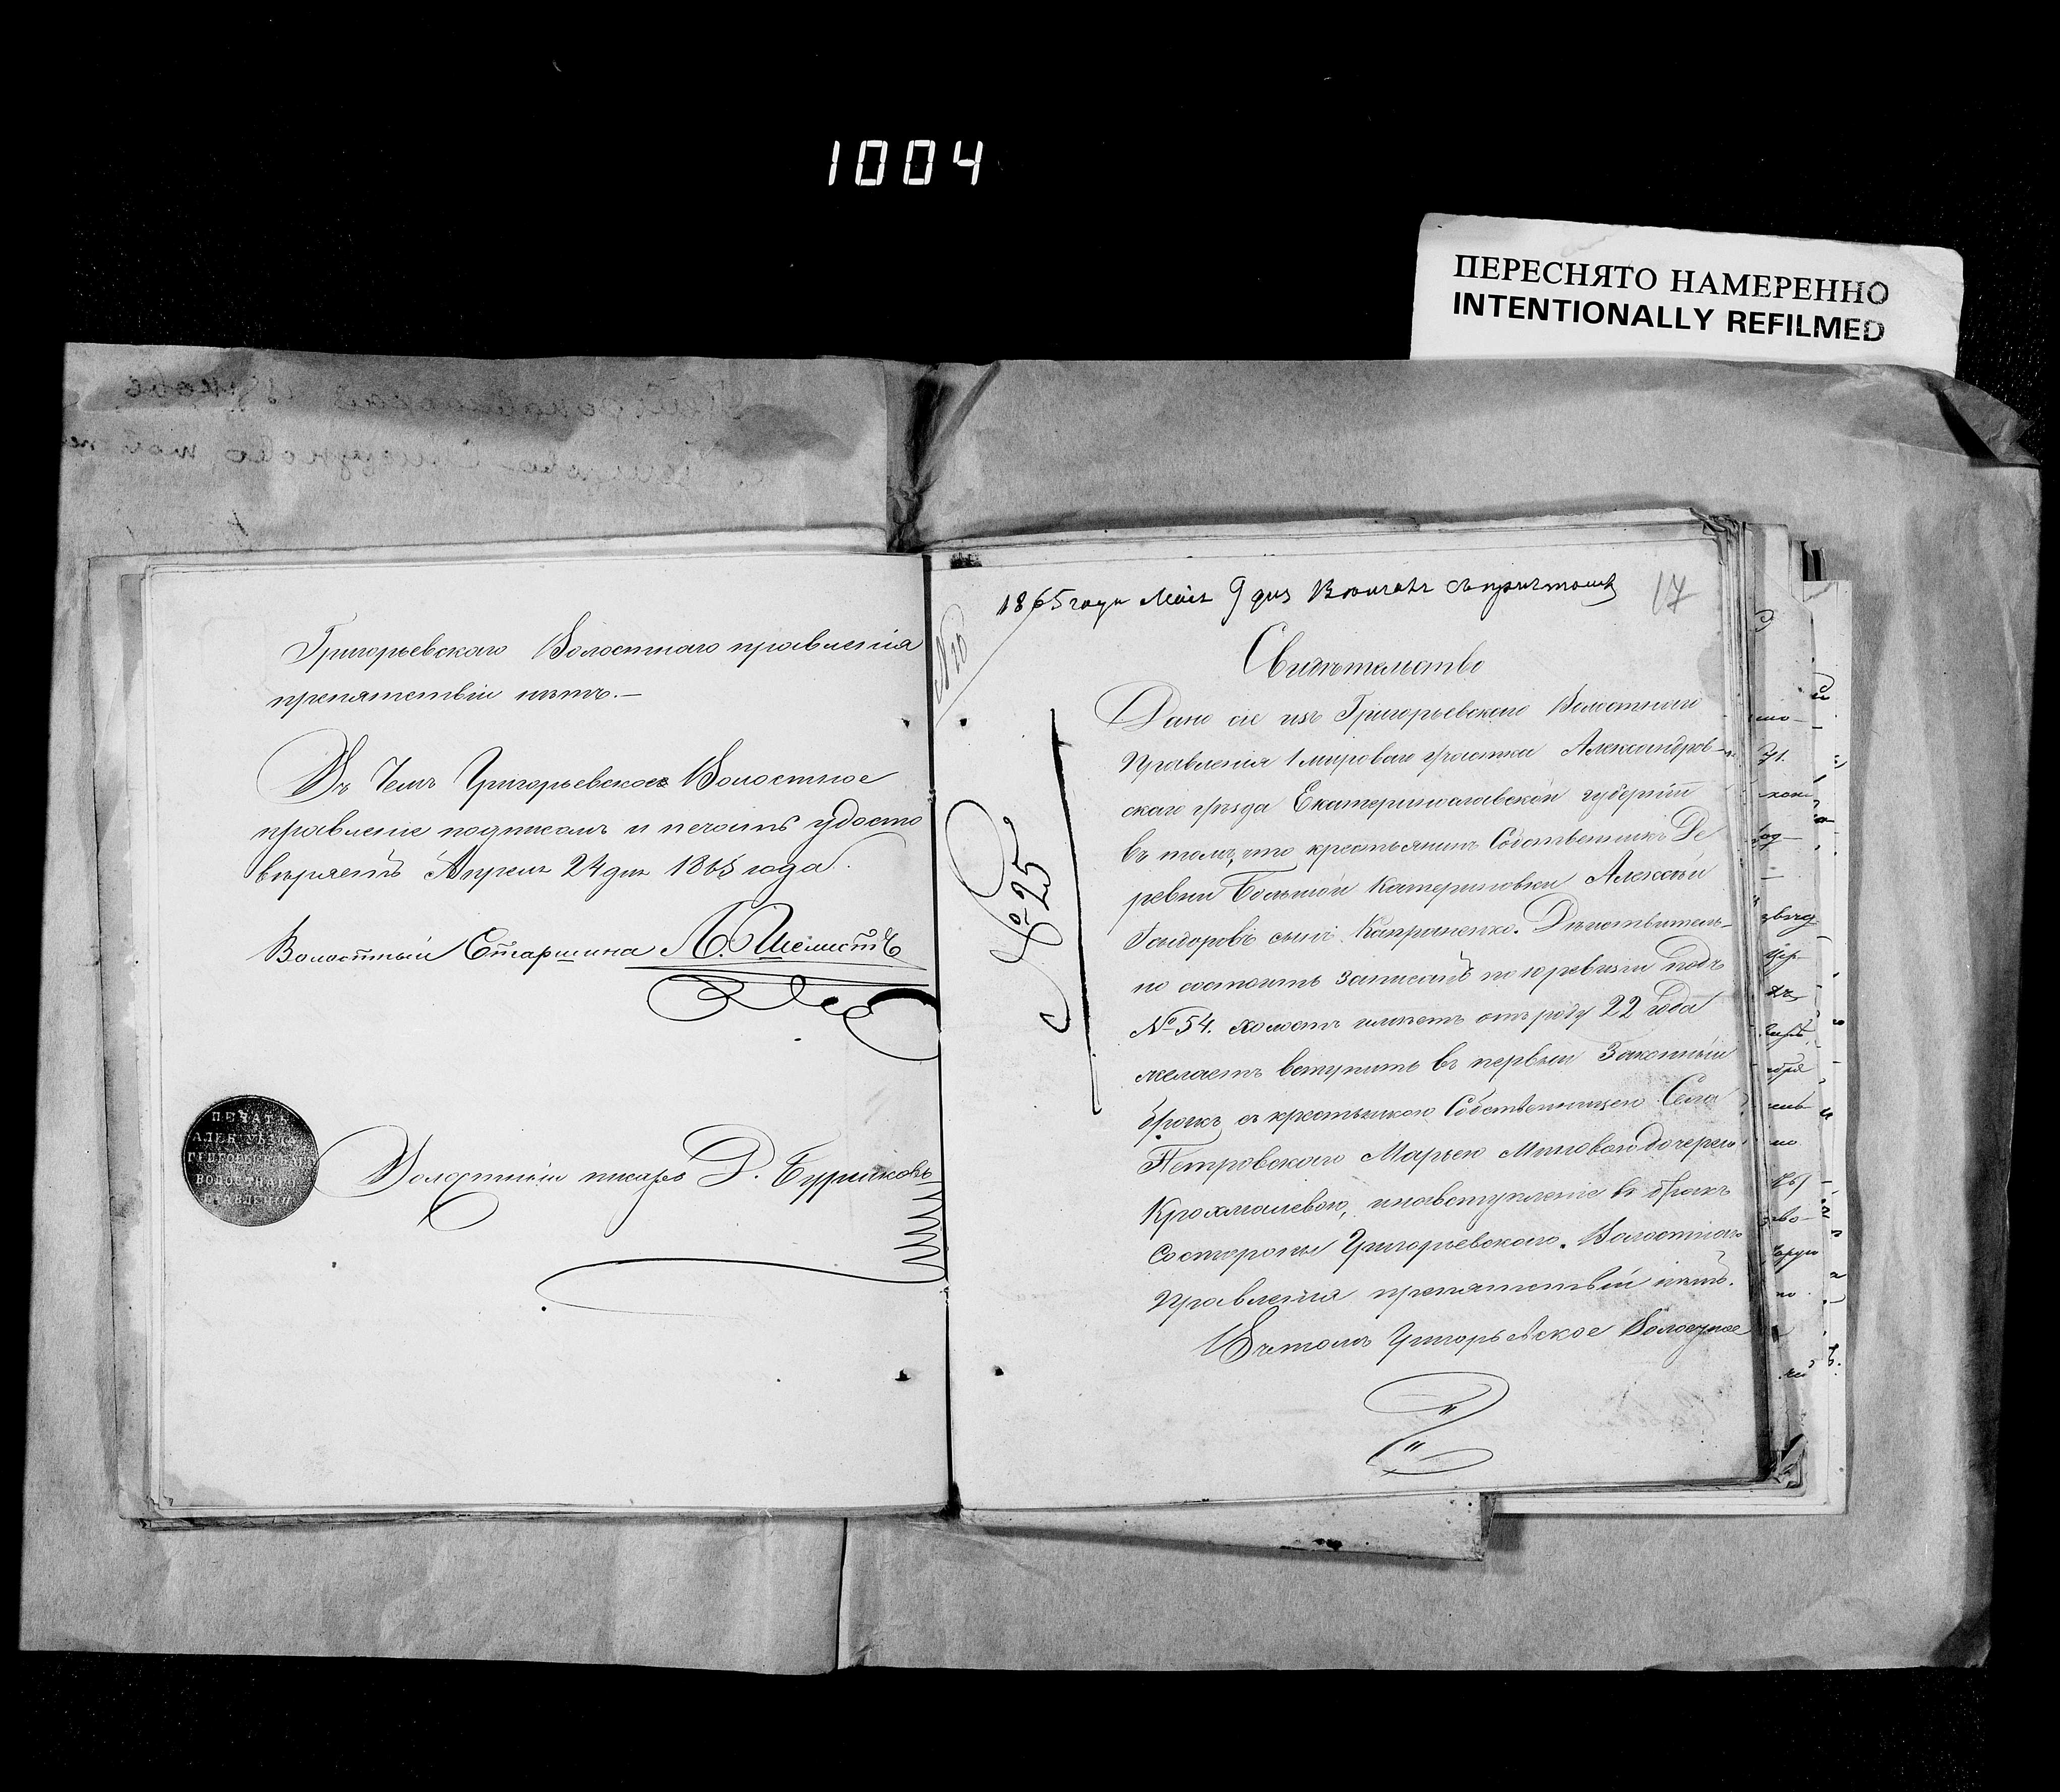 1004
ПЕРЕСНЯТО НАМЕРЕННО
INTENTIONALLY REFILMED
Григорьевскаго Волостнаго правленія
препятствіи нѣтъ.—
Въ чемъ Григорьевское Волостное
правленіе подписомъ и печатью удосто
вѣряетъ Апреля 24 дня 1865 года.
Волостный Старшина
Волостный писарь Д. Бурлаковъ
ПЕЧАТЬ
АЛЕК. УѢЗДА
ГРИГОРЬЕВСКАГО
ВОЛОСТНАГО
ПРАВЛЕНІЯ
1865 года Мая 9 дня
17
№ 25
Свидѣтельство
Дано сіе изъ Григорьевскаго Волостнаго
Правленія 1 мироваго участка Александров-
скаго уѣзда Екатеринославской губерніи
въ томъ, что крестьянинъ Собственникъ Де
ревни Большой Катериновки Алексѣй
сынъ Действитель-
но состоитъ записанъ по 10 ревизіи подъ
№ 54. холостъ имѣетъ отъ роду 22 года
желаетъ вступить въ первый Законный
бракъ съ крестьянкою Собственницею Села
Петровскаго Марьею дочерею
Крохмалевою, инавступленіе въ бракъ
Состороны Григорьевскаго Волостнаго
Правленія препятствій нѣтъ.
Вчетомъ Григорьевское Волостное